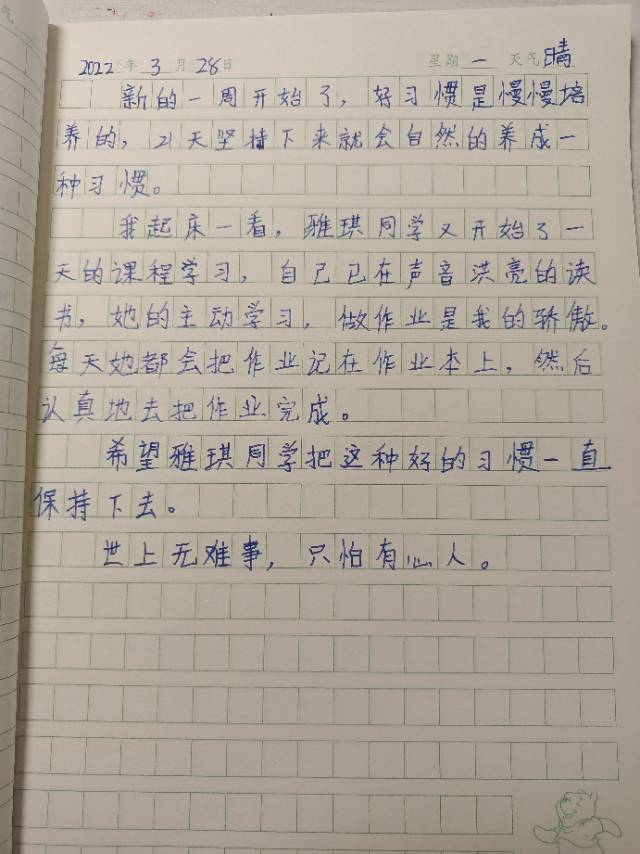 2022年3月28日 星期一 天气晴
新的一周开始了，好习惯是慢慢培
养的，21天坚持下来就会自然的养成一
种习惯。
我起床一看，雅琪同学又开始了一
天的课程学习，自己已在声音洪亮的读
书，她的主动学习，做作业是我的骄傲。
每天她都会把作业记在作业本上，然后
认真地去把作业完成。
希望雅琪同学把这种好的习惯一直
保持下去。
世上无难事，只怕有心人。